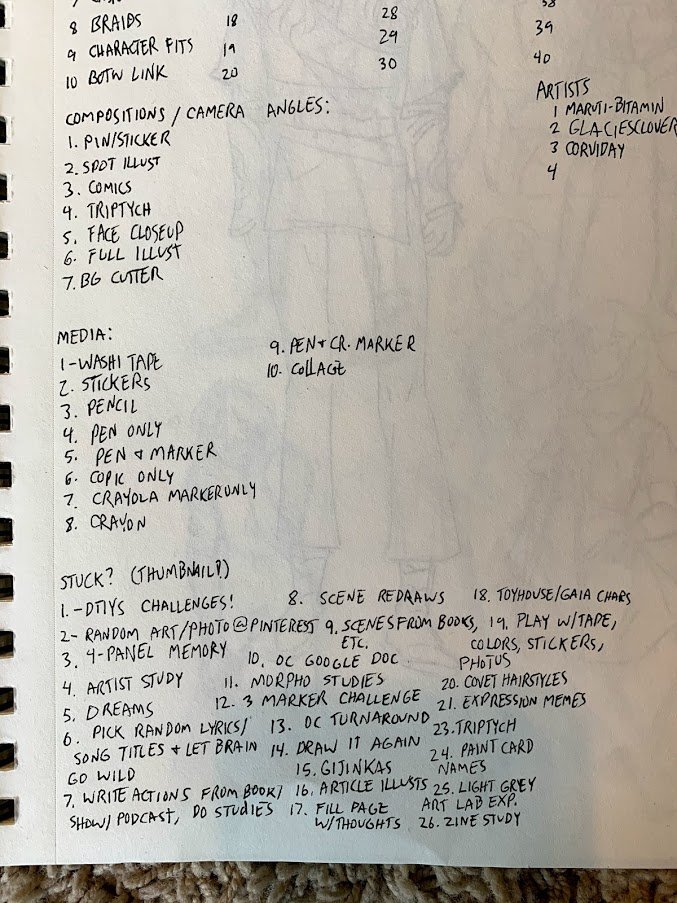 8 BRAIDS
9 CHARACTER FITS
10 BOTW LINK
18
19
20
28
29
30
38
39
40
ARTISTS
1 MARUTI-BITAMIN
2 GLACIESCLOVER
3 CORVIDAY
4
COMPOSITIONS / CAMERA ANGLES:
1. PIN/STICKER
2. SPOT ILLUST
3. COMICS
4. TRIPTYCH
5. FACE CLOSEUP
6. FULL ILLUST
7. BG CUTTER
MEDIA:
1-WASHI TAPE
2. STICKERS
3. PENCIL
4. PEN ONLY
5. PEN & MARKER
6. COPIC ONLY
7. CRAYOLA MARKER ONLY
8. CRAYON
9. PEN + CR. MARKER
10. COLLAGE
STUCK? (THUMBNAIL!)
1.-DTIYS CHALLENGES!
2- RANDOM ART/PHOTO @ PINTEREST
3. 4-PANEL MEMORY
4. ARTIST STUDY
5. DREAMS
6. PICK RANDOM LYRICS/
SONG TITLES + LET BRAIN
GO WILD
7. WRITE ACTIONS FROM BOOK/
SHOW/PODCAST, DO STUDIES
8. SCENE REDRAWS
9. SCENES FROM BOOKS,
ETC.
10. OC GOOGLE DOC
11. MORPHO STUDIES
12. 3 MARKER CHALLENGE
13. OC TURNAROUND
14. DRAW IT AGAIN
15. GIJINKAS
16. ARTICLE ILLUSTS
17. FILL PAGE
W/THOUGHTS
18. TOYHOUSE/GAIA CHARS
19. PLAY W/TAPE,
COLORS, STICKERS,
PHOTOS
20. COVET HAIRSTYLES
21. EXPRESSION MEMES
23. TRIPTYCH
24. PAINT CARD
NAMES
25. LIGHT GREY
ART LAB EXP.
26. ZINE STUDY